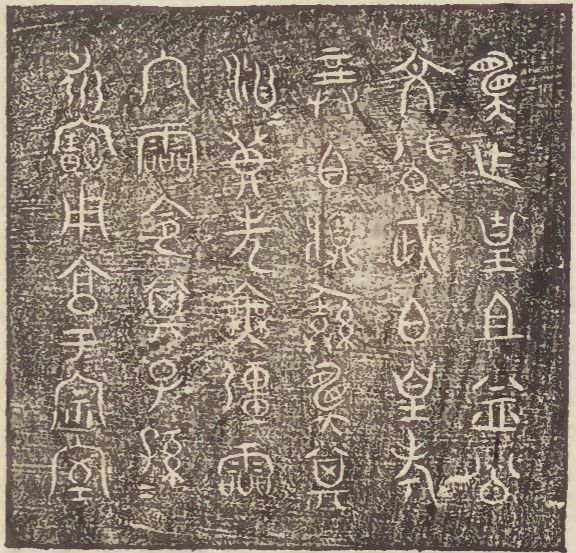 乍皇且益公
文公武白皇考
龏白彝其
洍萬年無疆霝
冬霝令其子孫
永寶用享于宗室